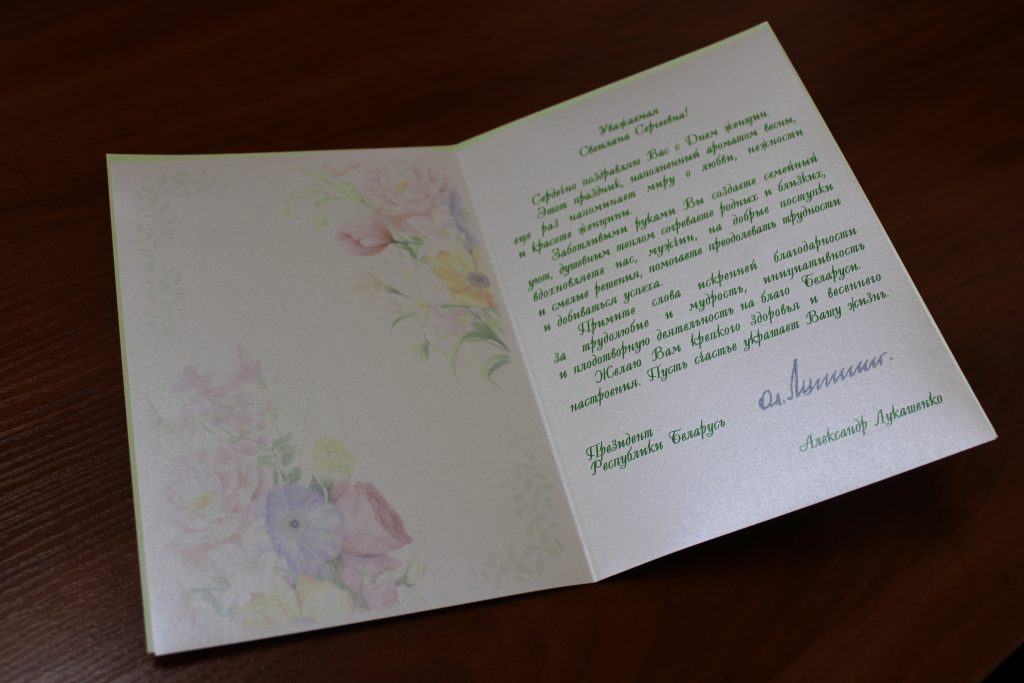 Уважаемая
Светлана Сергеевна!
Сердечно поздравляю Вас с Днем женщин.
Этот праздник, наполненный ароматом весны,
еще раз напоминает миру о любви, нежности
и красоте женщины.
Заботливыми руками Вы создаете семейный
уют, душевным теплом согреваете родных и близких,
вдохновляете нас, мужчин, на добрые поступки
и смелые решения, помогаете преодолевать трудности
и добиваться успеха.
Примите слова искренней благодарности
за трудолюбие и мудрость, инициативность
и плодотворную деятельность на благо Беларуси.
Желаю Вам крепкого здоровья и весеннего
настроения. Пусть счастье украшает Вашу жизнь.
Президент
Республики Беларусь
Александр Лукашенко